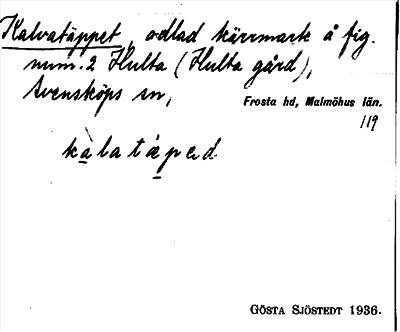 Kalvatäppet, odlad kärrmark å fig.
num. 2 Hulta (Hulta gård),
Svensköps sn,
Frosta hd, Malmöhus län.
119
kàlatáped
GÖSTA SJÖSTEDT 1936.